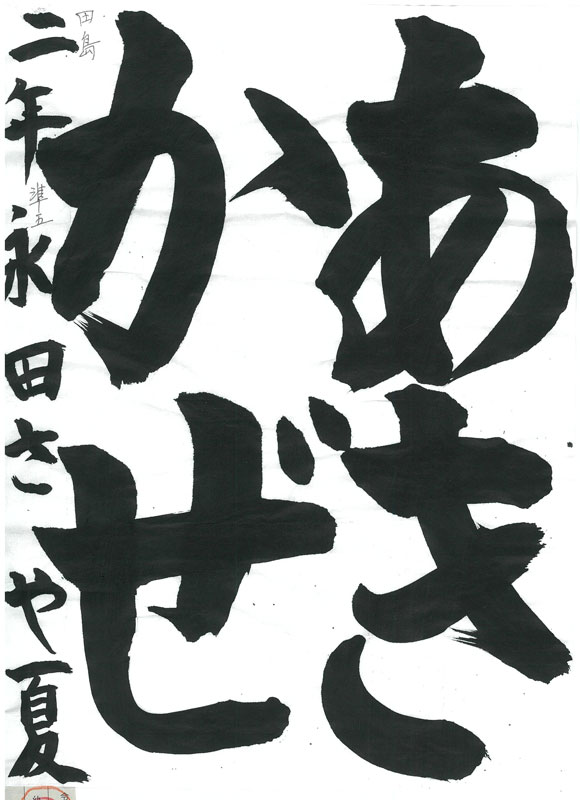 あさ
かぜ
二年永田さや夏
田島
準五